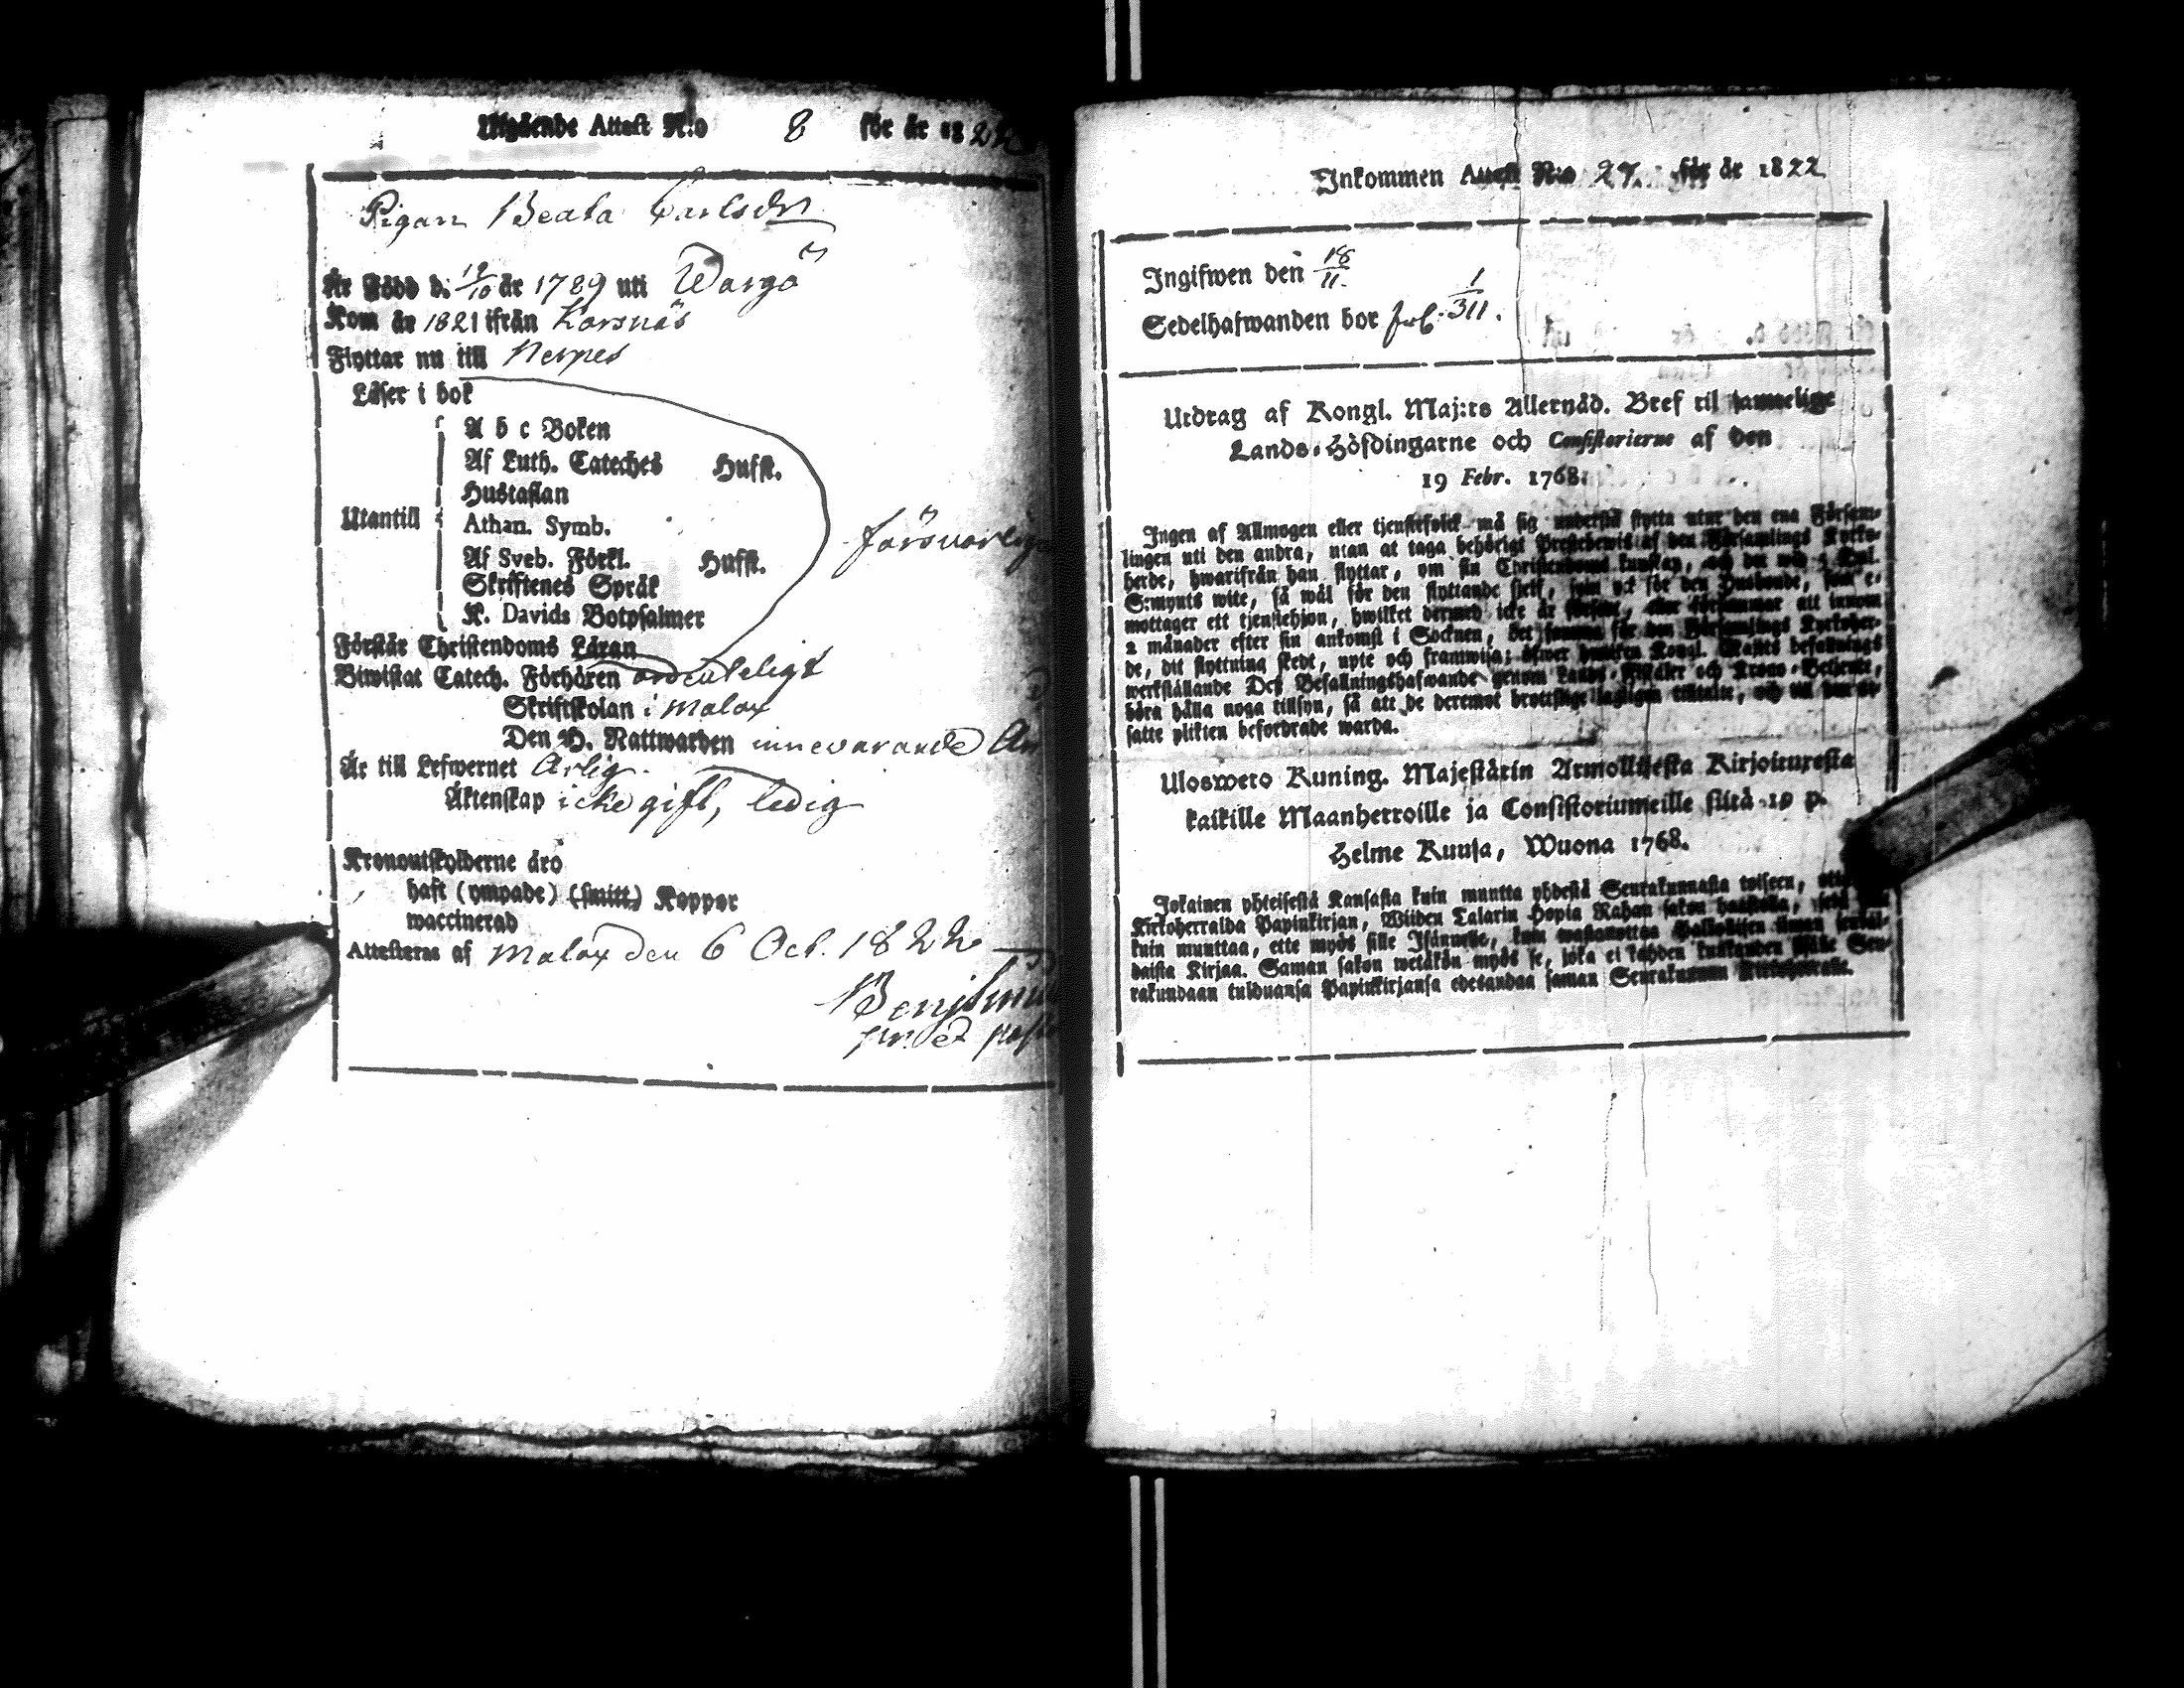 Utgående Attest N:o 8 för år 1822
Pigan Beata Carlsdr
Är Född d. 19/10 år 1789 uti Wargö
Kom år 1821 ifrån Korsnäs
Flyttar nu till Nerpes
Läser i bok
A b c Boken
Af Luth. Cateches Husst.
Hustaflan
Utantill Athan. Symb.
försvarlig
Af Sveb. Förkl. Husst.
Skriftenes Språk
K. Davids Botpsalmer
Förstår Christendoms Läran
Biwistat Catech. Förhören ordenteligt
Skriftskolan i Malax
Den H. Nattwarden innevarande
Är till Lefwernet Ärlig
Äktenskap icke gift, ledig
Kronoutskylderne äro
haft (ympade) (smitt.) Koppor
waccinerad
Attesteras af Malax den 6 Oct. 1822
Inkommen Attest N:o 27. för år 1822
Ingifwen den 18/11.
Sedelhafwanden bor fol. 1/311.
Utdrag af Kongl. Maj:ts Allernåd. Bref til samtelige
Lands-Höfdingarne och Consistorierne af den
19 Febr. 1768.
Ingen af Allmogen eller tjenstefolck må sig understå flytta utur den ena Försam-
lingen uti den andra, utan at taga behörigt Prestebewis af den Församlings Kyrko-
herde, hwarifrån han flyttar, om sin Christendoms kunskap, och det wid 5 Dal.
S:mynts wite, så wäl för den flyttande sielf, som ock för den Husbonde, som e-
mottager ett tjenstehjon, hwilket dermed icke är försedt, eller försummar att innom
2 månader efter sin ankomst i Socknen, det samma för den Församlings Kyrkoher-
de, dit flyttning skedt, upte och framwisa; öfwer hwilken Kongl. Maj:ts befallnings
werkställande Des Befallningshafwande genom Lands-Fiskaler och Krono-Betjente,
böra hålla noga tillsyn, så att de deremot brottslige lagligen tilltalte, och till den ut-
satte plikten befordrade warda.
Ulosweto Kuning. Majestätin Armollisesta Kirjoituxesta
kaikille Maanherroille ja Consistoriumeille siitä 19 p.
Helme Kuusa, Wuona 1768.
Jokainen yhteisestä Kansasta kuin muutta yhdestä Seurakunnasta toiseen,
Kirkoherralda Papinkirjan, Wiiden Talarin Hopia Rahan sakon haastolla,
kuin muuttaa, ette myös sille Isännelle, kuin wastanottaa Palkolisen ilman sencal-
daista Kirjaa. Saman sakon wetäkön myös se, joka ei kahden kuukauden sisälle Seu-
rakundaan tulduansa Papinkirjansa edesandaa saman Seurakunnan Kirkoherralle.